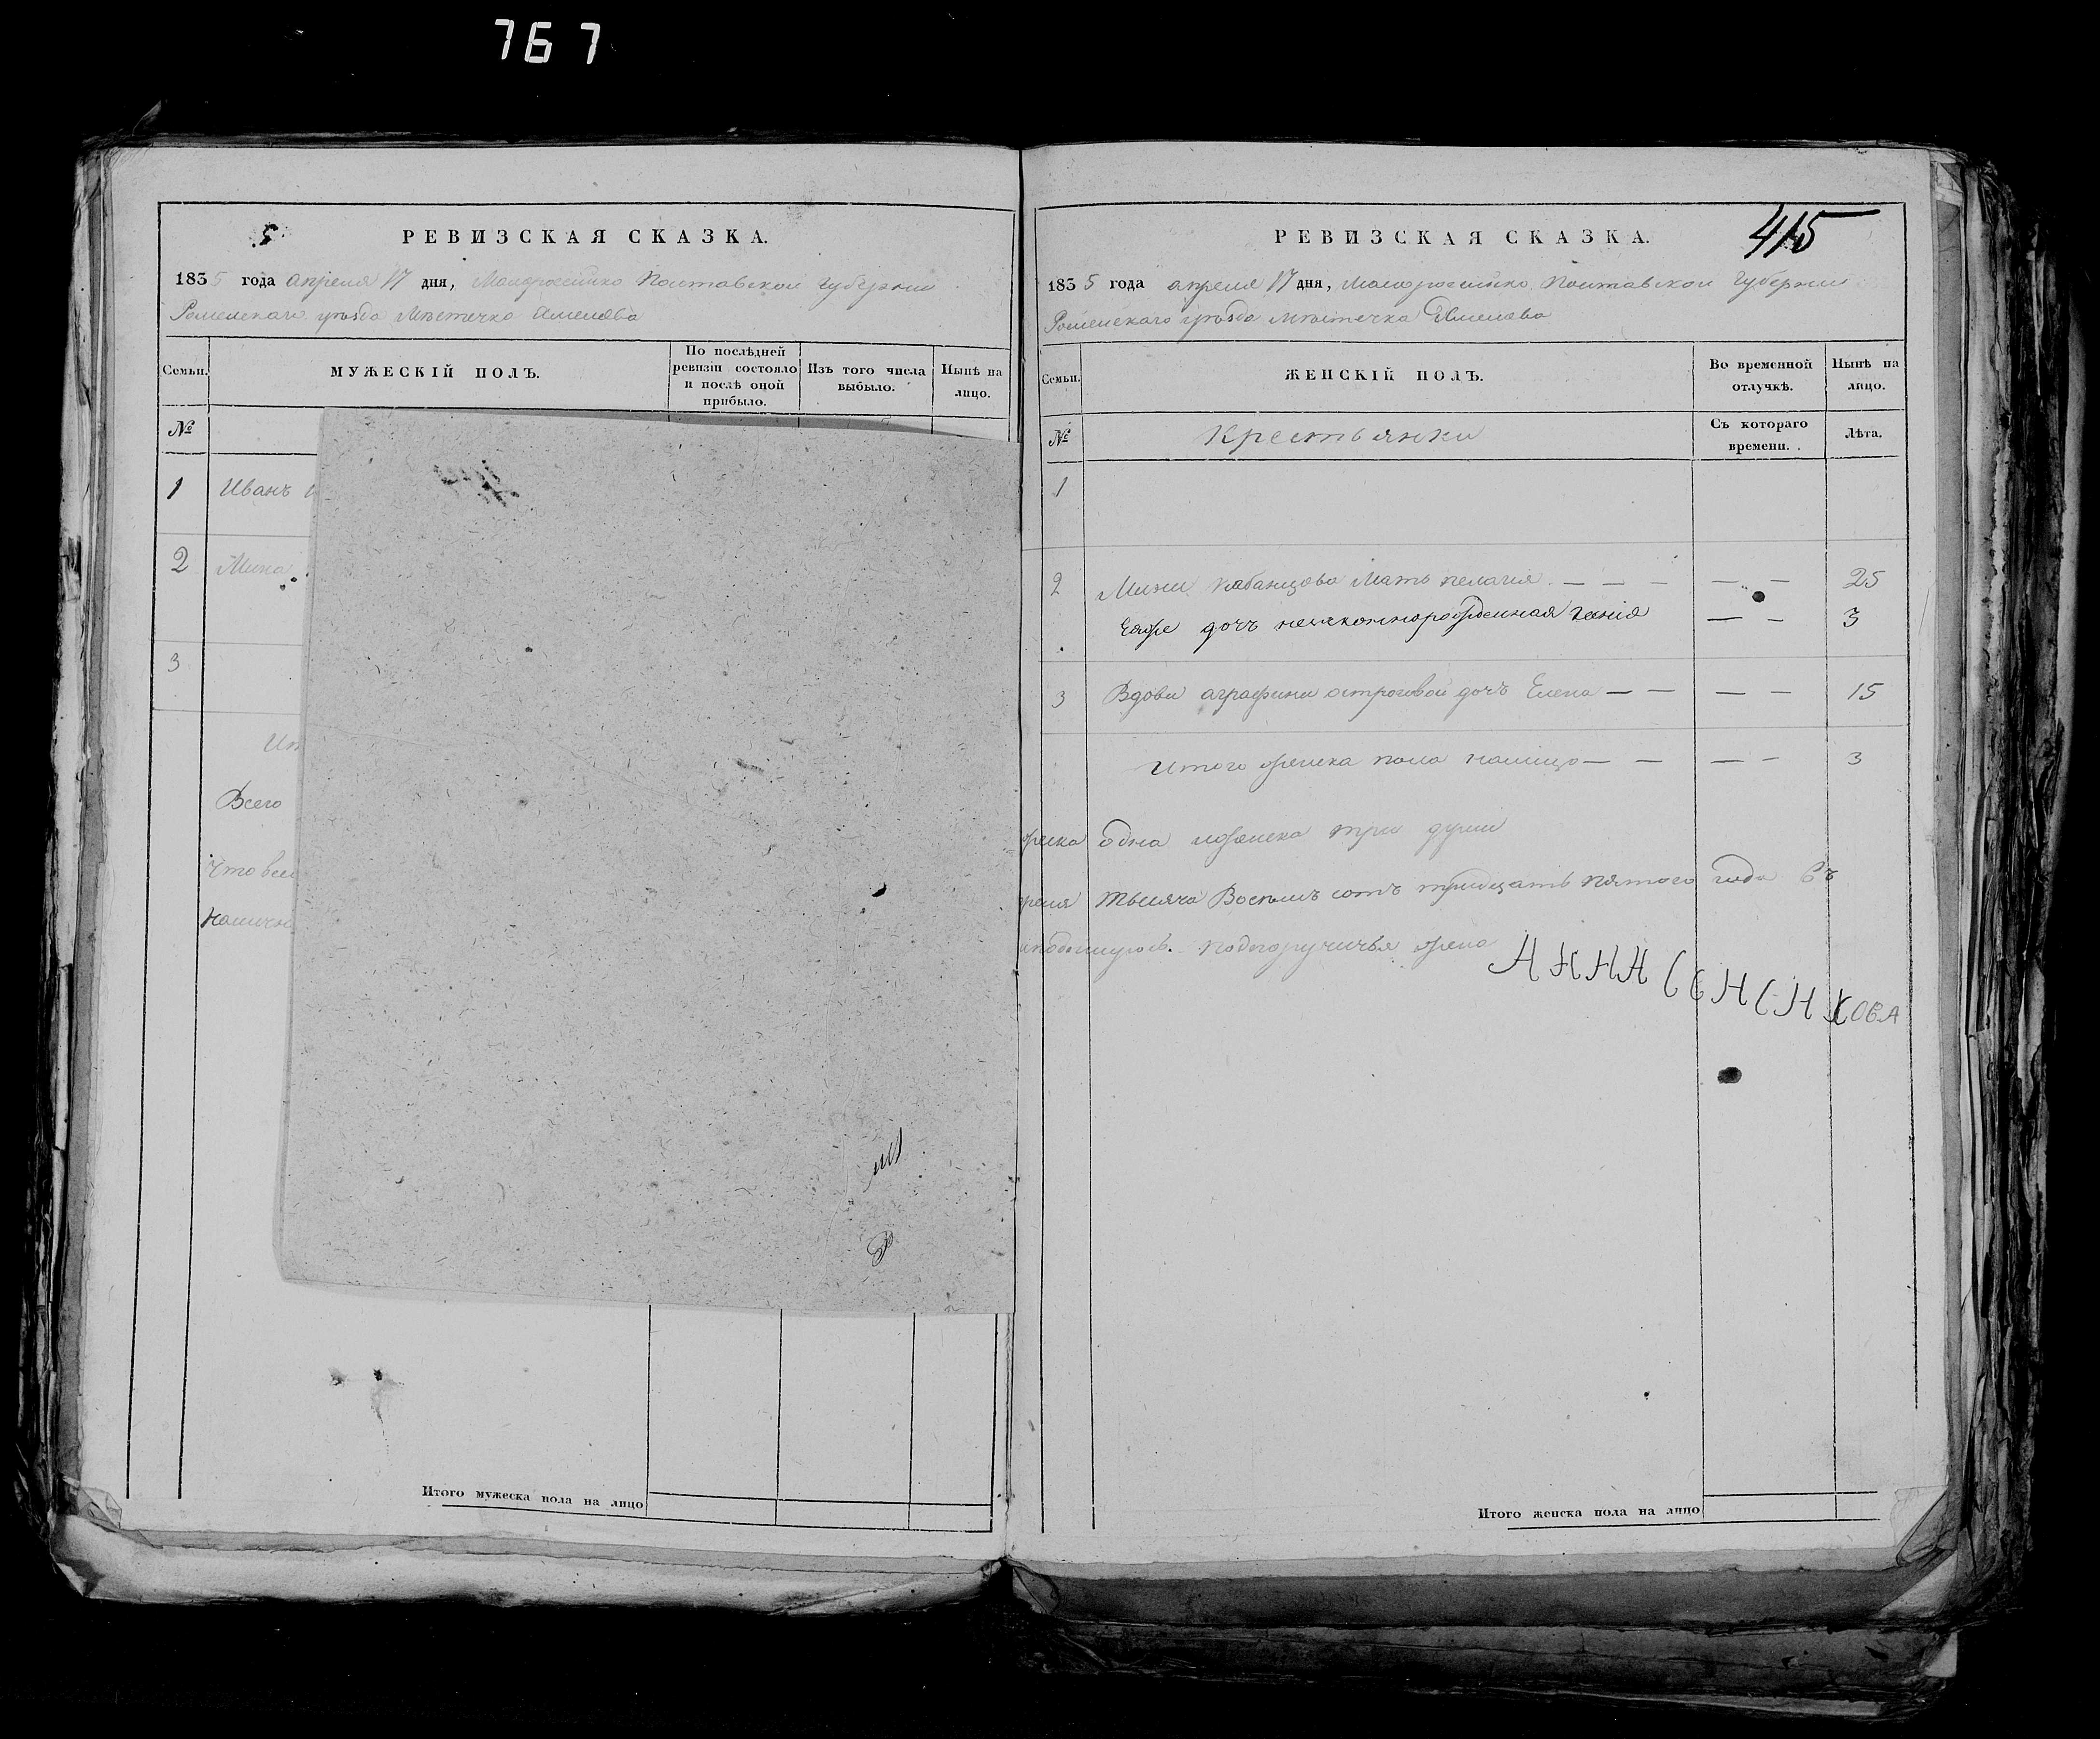 767
5
РЕВИЗСКАЯ СКАЗКА.
1835 года апреля 17 дня, Малороссийско Полтавской Губернии
Роменскаго уѣзда Мѣстечко
Семьи.
МУЖЕСКІЙ ПОЛЪ.
По послѣдней ревизіи состояло и послѣ оной прибыло.
Изъ того числа выбыло.
Нынѣ на лицо.
№
1 Иванъ
2 Мина
3
Всего
Что всем
наличн
Итого мужеска пола на лицо
415
РЕВИЗСКАЯ СКАЗКА.
1835 года апреля 17 дня, Малороссийско Полтавской Губернии
Роменскаго уѣзда мѣстечка
Семьи.
ЖЕНСКІЙ ПОЛЪ.
Во временной отлучкѣ.
Нынѣ на лицо.
№
Крестьянки
Съ котораго времени.
Лѣта.
1
2 Мини Кабанцова Мать пелагия — — — — — 25
Ея же дочъ незаконнорожденная — — 3
3 Вдови аграфини острововой дочъ Елена — — — — 15
Итого женска пола налицо — — — — 3
жеска одна иженска три души
преля тысяча Восемъ сотъ тридцать пятого года въ
АННА СЕНЕНКОВА
Итого женска пола на лицо